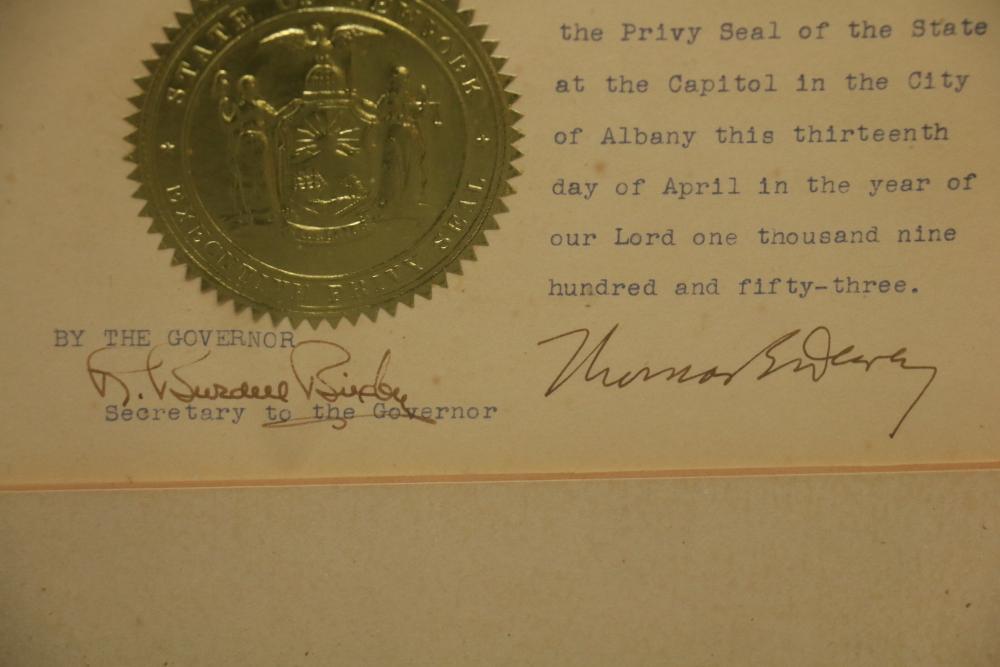 STATE OF NEW YORK
EXECUTIVE PRIVY SEAL
the Privy Seal of the State
at the Capitol in the City
of Albany this thirteenth
day of April in the year of
our Lord one thousand nine
hundred and fifty-three.
BY THE GOVERNOR
R. Burdell Bixby
Thomas E. Dewey
Secretary to the Governor